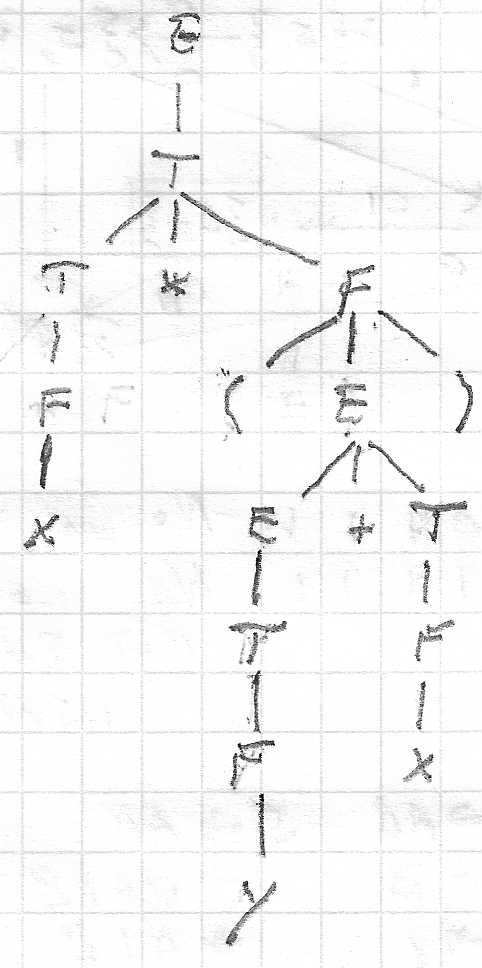 E
T
T * F
F ( E )
X E + T
T F
F X
Y